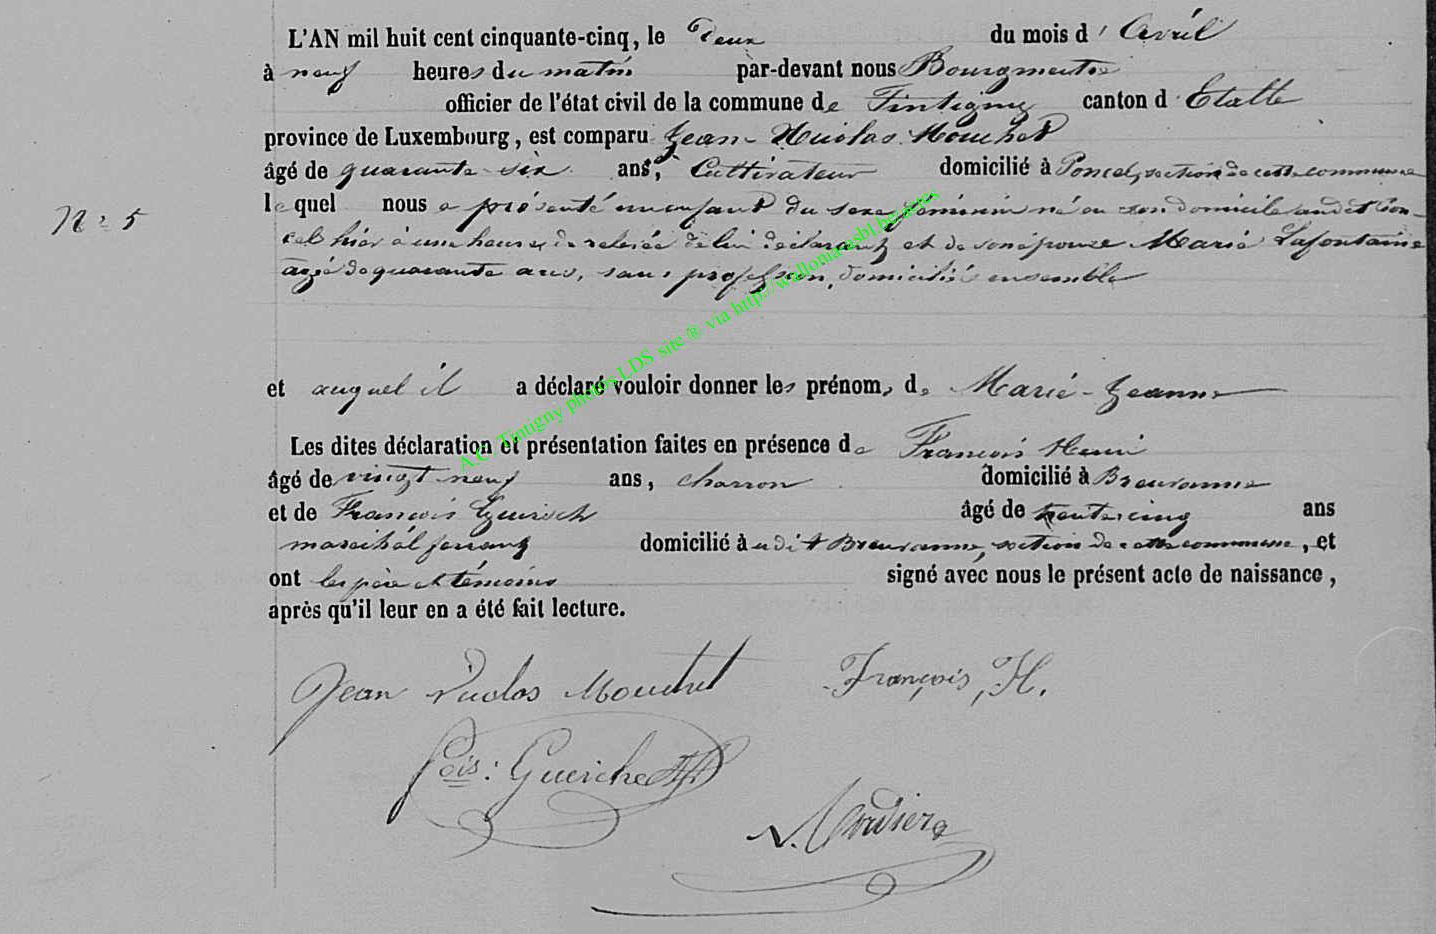 L'AN mil huit cent cinquante-cinq, le Deux du mois d'Avril
à neuf heures du matin par-devant nous Bourgmestre
officier de l'état civil de la commune de Tintigny canton d'Etalle
province de Luxembourg, est comparu Jean Nicolas Mouchet
âgé de quarante-six ans, Cultivateur domicilié à Poncel, section de cette commune
N° 5
lequel nous a présenté un enfant du sexe féminin né en son domicile audit Pon-
cel hier à une heure de relevée de lui déclarant et de son épouse Marie Lafontaine
agée de quarante ans, sans profession, domiciliés ensemble
et auquel il a déclaré vouloir donner les prénoms de Marie-Jeanne
Les dites déclaration et présentation faites en présence de François Henri
âgé de vingt neuf ans, charron domicilié à Breuvanne
et de François âgé de trente cinq ans
maréchal ferrant domicilié audit Breuvanne, section de cette commune, et
ont les père et témoins signé avec nous le présent acte de naissance,
après qu'il leur en a été fait lecture.
Jean Nicolas Mouchet François, H.
fois:
A.C. Tintigny photos LDS site ® via http://wallonia-asbl.be.actes